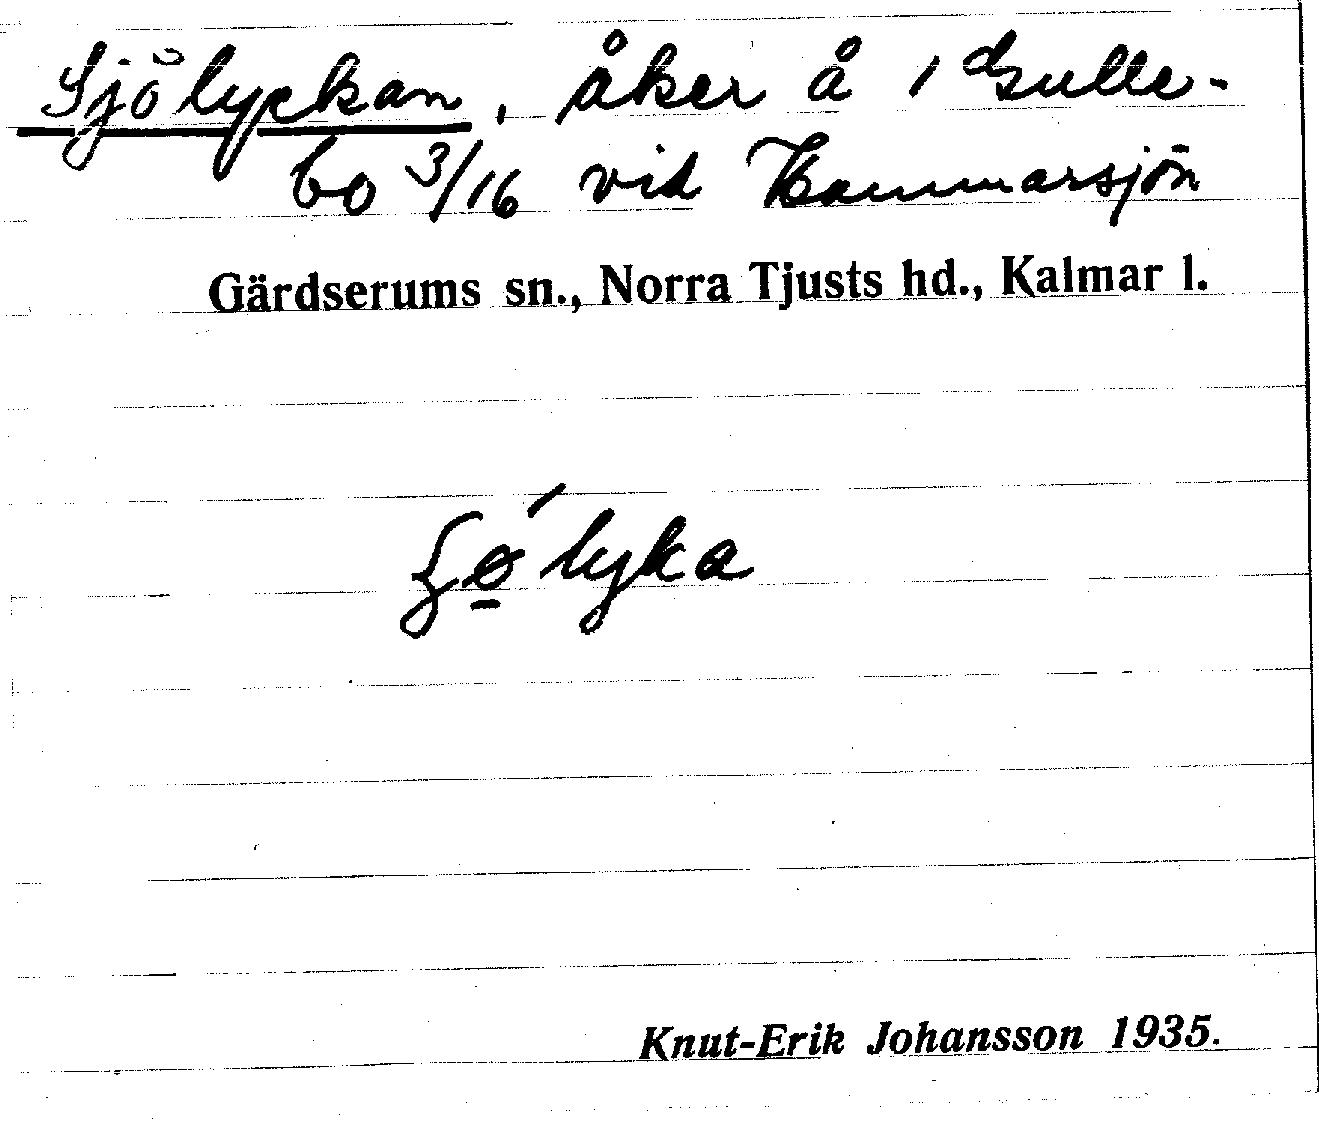 Sjölyckan, åker å 1 Gulle-
bo 3/16 vid Hammarsjön
Gärdserums sn., Norra Tjusts hd., Kalmar l.
ʃø̱´lyka
Knut-Erik Johansson 1935.